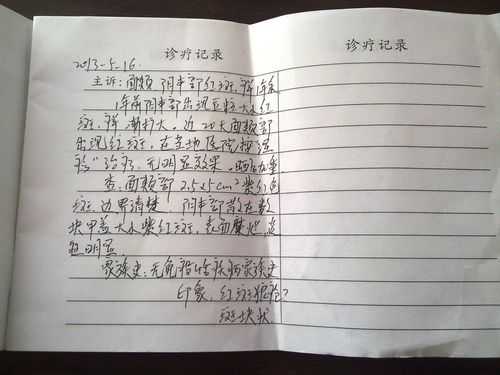 诊疗记录
诊疗记录
2013-5-16
主诉:面颊、阴部红斑、痒1年余
1年前阴部出现豆粒大小红
斑、痒,渐扩大。近20天面颊部
出现红斑,在当地医院按湿
疹"治疗,无明显效果。晒后加重
查:面颊部2.5x5cm²紫红色
斑,边界清楚。阴部散在数
块甲盖大小紫红斑,表面糜烂,炎
症明显。
家族史:无免疫性疾病家族史
印象:红斑狼疮?
斑块状